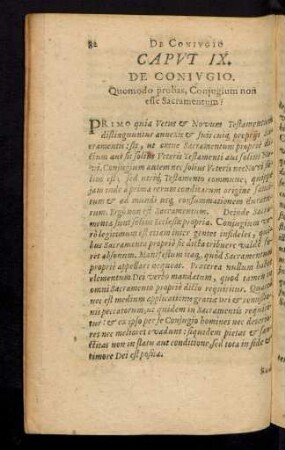 82 DE CONIVGIO
CAPVT IX.
DE CONIVGIO.
Quomodo probas, Conjugium non
esse Sacramentum?
PRIMO quia Vetus & Novum Testamentum
distinguuntur annexis & suis cuiq; propriis
cramentis: sic, ut omne Sacramentum proprie di
ctum aut sit solius Veteris Testamenti aut solius
vi. Conjugium autem nec solius Veteris nec Novi
sed utriq; Testamento commune, quippe
jam inde a prima rerum conditarum origine
& ad mundi usq; consummationem
rum. Ergo non est Sacramentum. Deinde Sacra-
menta sunt solius Ecclesiæ propria. Conjugium
rò legitimum est etiam inter gentes infideles, quibus
Sacramenta propriè sic dicta tribuere valdè
ret absonum. Manifestum itaq; quòd Sacramentum
propriè appellari nequeat. Præterea nullum habet
elementum Dei verbo mandatum, quod tamen in
omni Sacramento propriè dicto requiritur. Quando
nec est medium applicationis gratiæ vei & remissio-
nis peccatorum, ut quidem in Sacramentis requiri-
tur: & ex ipso per se Conjugio homines nec deterio-
res nec meliores evadunt: siquidem pietas & san-
ctitas non in statu aut conditione, sed tota in fide &
timore Dei est posita.